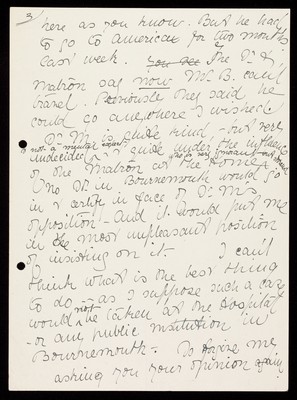 3)
here as you know. But he had
to go to America for two months
last week. You see The Dr &
Matron say now Mr B. can't
travel. Previously they said he
could go anywhere I wished
Dr M is quite kind - but very
not a mental expert
undecided & quite under the influence
of the Matron at the Home
One Dr in Bournemouth would go
in & certify in face of Dr M's
opposition - And it would put me
in the most unpleasant position
of insisting on it. I can't
think what is the best thing
to do - as I suppose such a case
would not be taken at the Hospital
- or any public institution in
Bournemouth - Do forgive me
asking you your opinion again